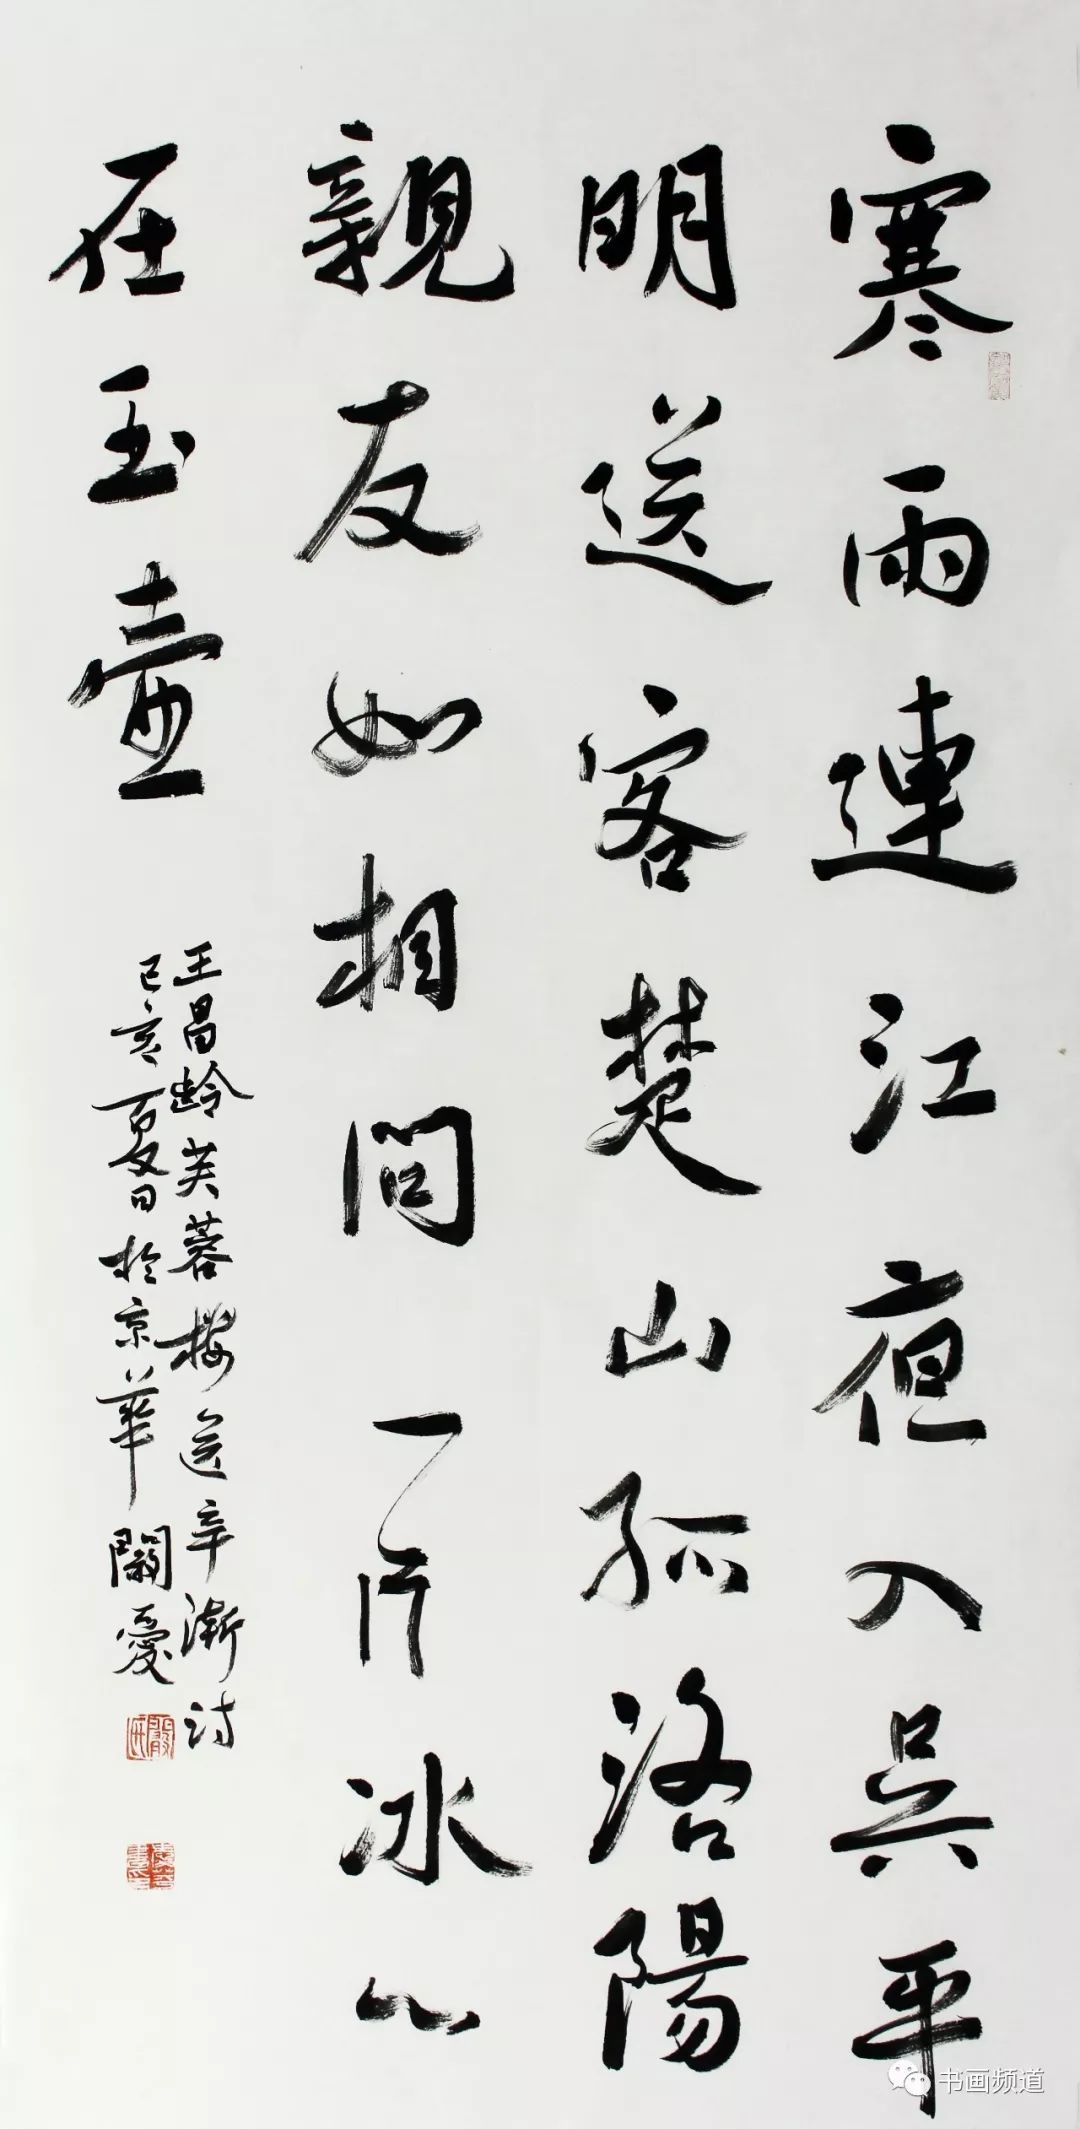 寒雨連江夜入吳平
明送客楚山孤洛陽
親友如相問一片冰心
在玉壺
王昌龄芙蓉樓送辛漸诗
己亥夏日於京華闞愛
书画频道